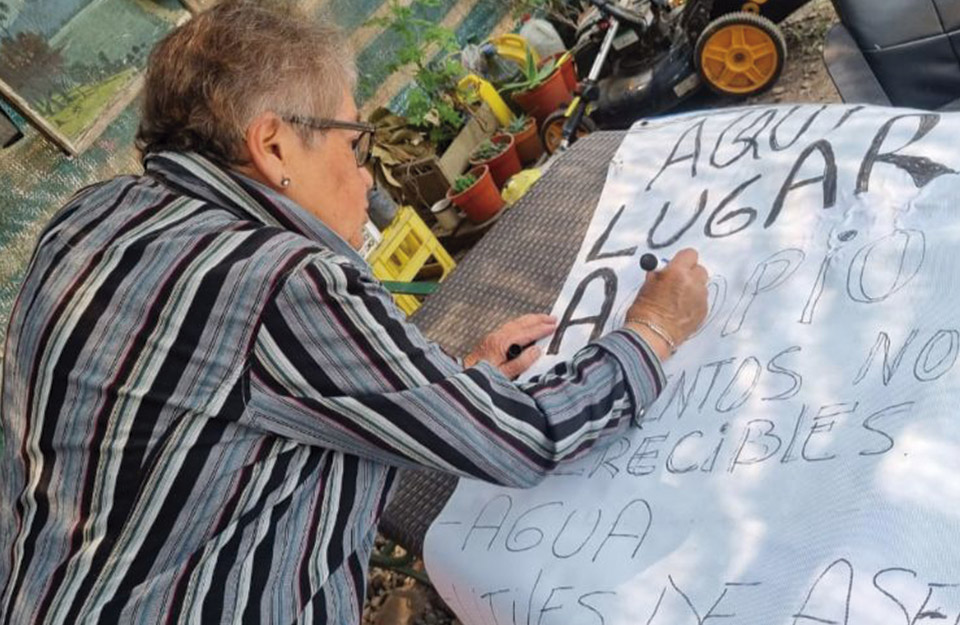 AQUI
LUGAR
ACOPIO
ENTOS NO
ERECIBLES.
-AGUA
UTILES DE ASE